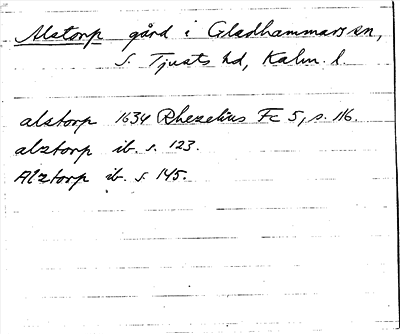 Alstorp gård i Gladhammars sn,
S. Tjusts hd, Kalm. l.
alstorp 1634 Rhezelius Fc 5, s. 116.
alztorp ib. s. 123.
Alztorp ib. s. 145.